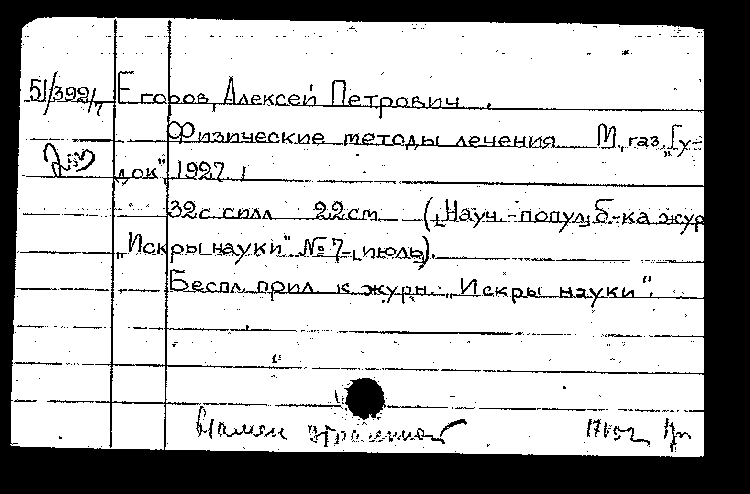 51/392/7 Егоров, Алексей Петрович.
Физические методы лечения М, газ „Гу-
док", 1927.
32 с. с илл 22 см („Науч.-попул. б-ка жур
„Искры науки" № 7, июль).
Беспл. прил. к журн. „Искры науки".
Взамен утраченной